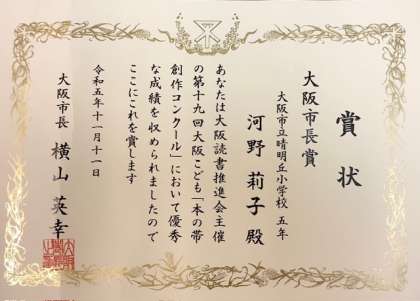 賞状
大阪市長賞
大阪市立晴明丘小学校 五年
河野 莉子 殿
あなたは大阪読書推進会主催
の第十九回大阪こども「本の帯
創作コンクール」において優秀
な成績を収められましたので
ここにこれを賞します
令和五年十一月十一日
大阪市長 横山英幸